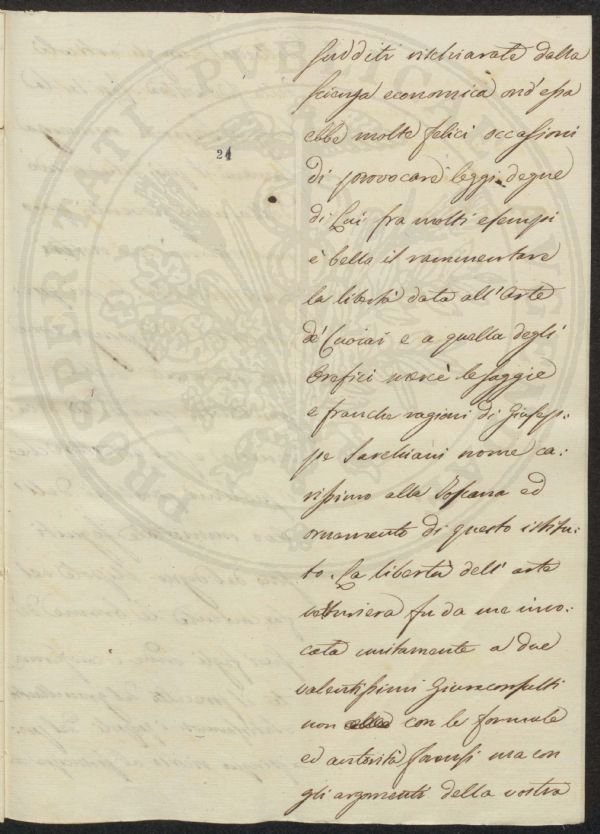 21
sudditi rischiarate dalla
scienza economica ond'essa
ebbe molte felici occasioni
di provocare leggi degne
di Lui fra molti esempi
è bello il rammentare
la libertà data all'Arte
de' Cuoiai e a quella degli
Orafici mercè le sagge
e franche ragioni di Giusep=
pe Sarchiani nome ca=
rissimo alla Toscana ed
ornamento di questo istitu=
to. La libertà dell'arte
vetturiera fu da me invo=
cata unitamente a due
valentissimi Giureconsulti
non con le formule
ed autorità forensi ma con
gli argomenti della vostra
PROSPERITATI PUBLICAE